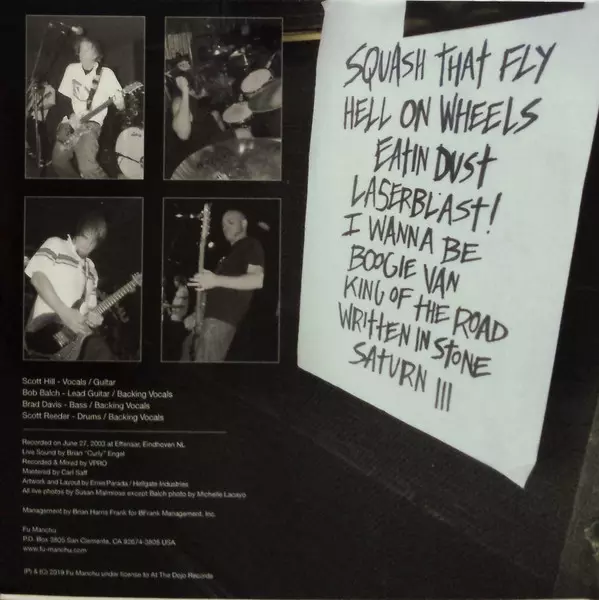 SQUASH THAT FLY
HELL ON WHEELS
EATIN DUST
LASERBLAST!
I WANNA BE
BOOGIE VAN
KING OF THE ROAD
WRITTEN IN STONE
SATURN III
Scott Hill - Vocals / Guitar
Bob Balch - Lead Guitar / Backing Vocals
Brad Davis - Bass / Backing Vocals
Scott Reeder - Drums / Backing Vocals
Recorded on June 27, 2003 at Effenaar, Eindhoven NL
Live Sound by Brian "Curly" Engel
Recorded & Mixed by VPRO
Mastered by Carl Saff
Artwork and Layout by ErnieParada / Hellgate Industries
All live photos by Susan except Balch photo by Michelle Lacayo
Management by Brian Harris Frank for BFrank Management, Inc.
Fu Manchu
P.O. Box 3805 San Clemente, CA 92674-3805 USA
www.fu-manchu.com
(P) & (C) 2019 Fu Manchu under license to At The Dojo Records